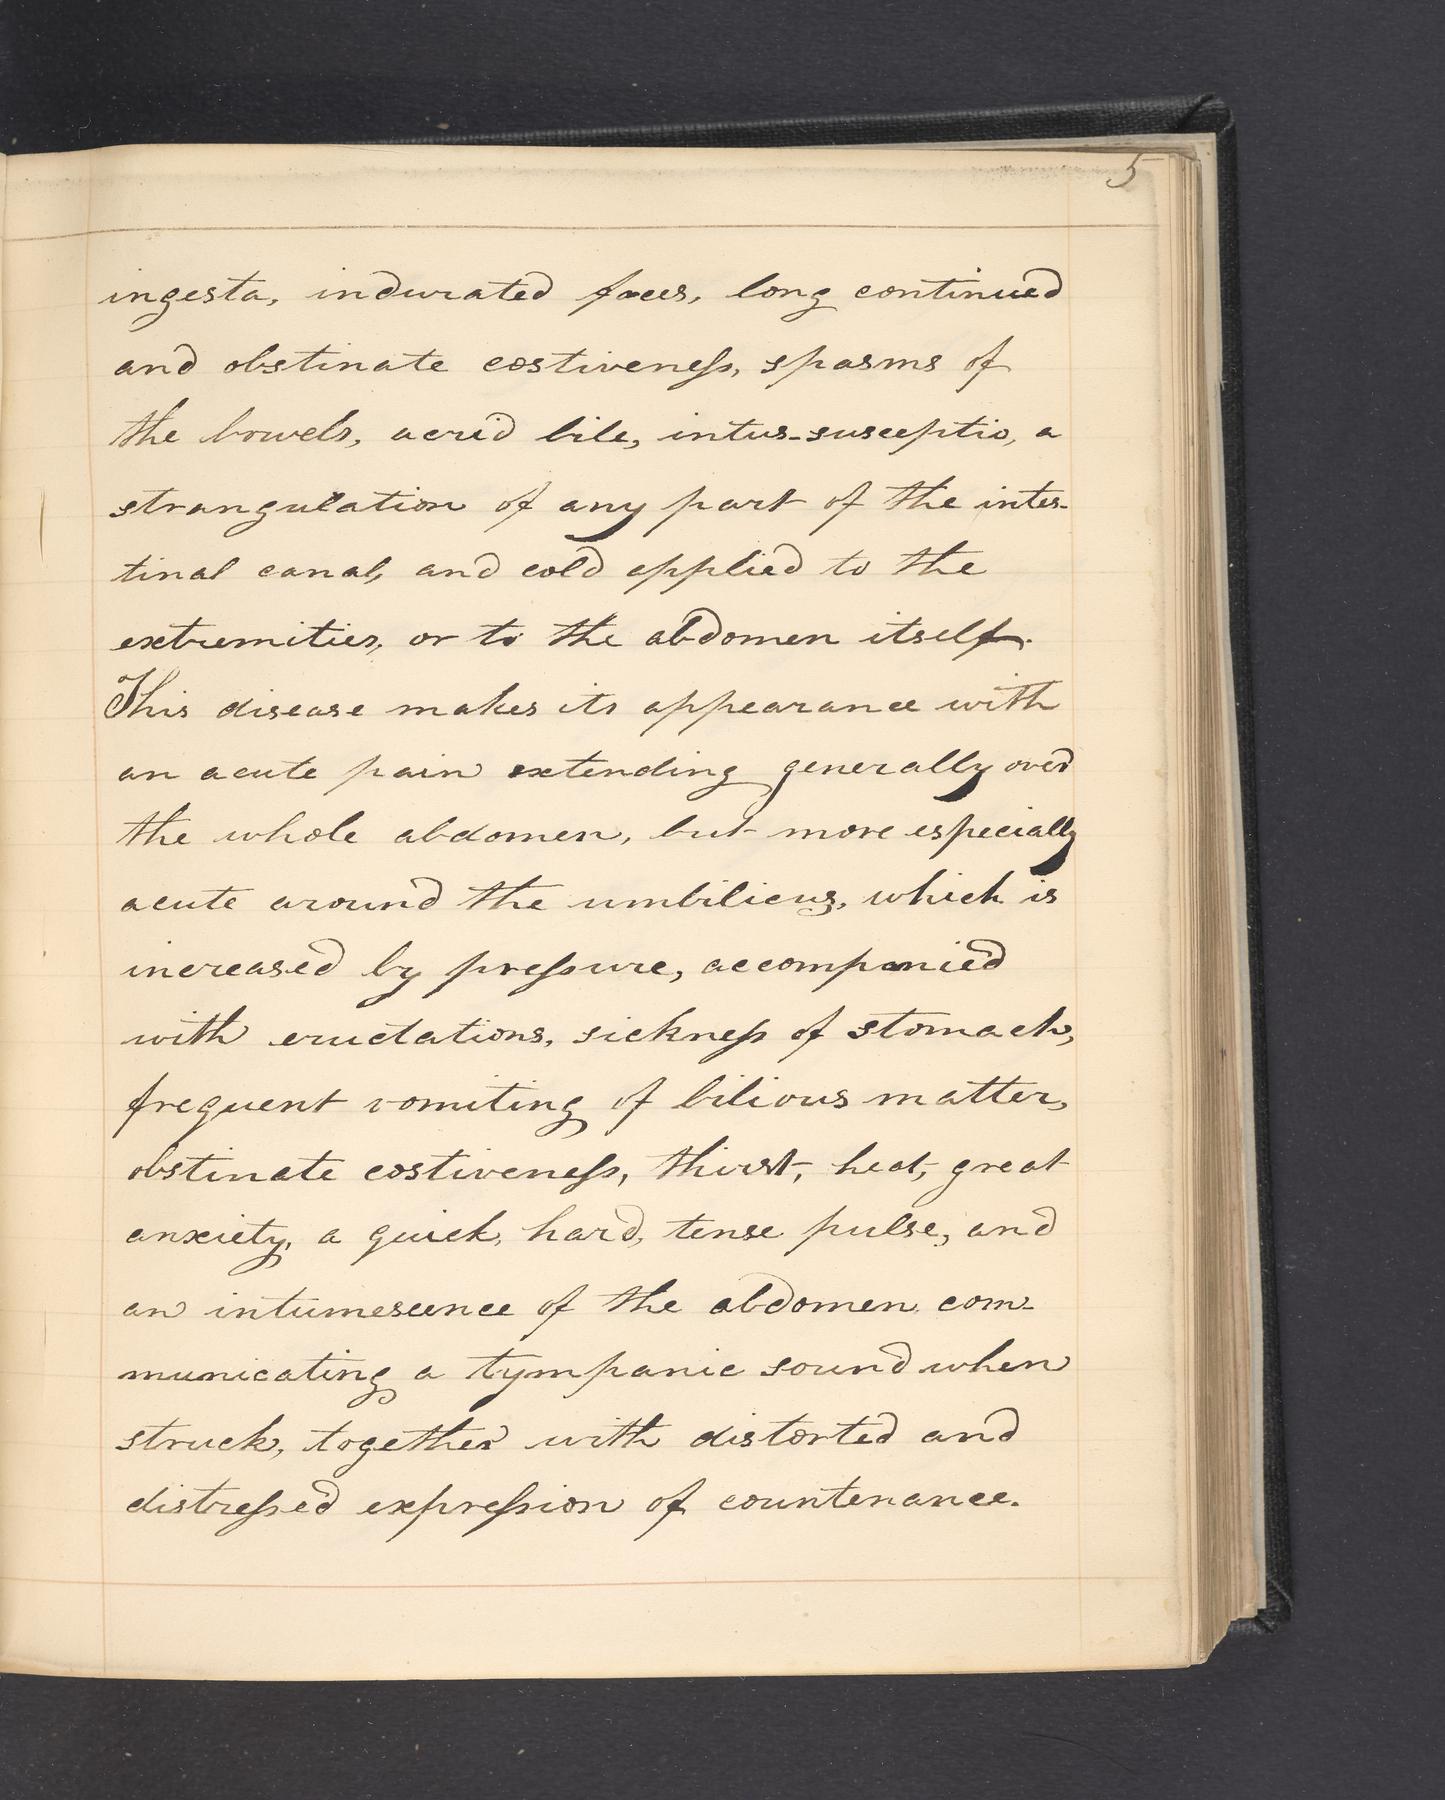 5
ingesta, indurated fæces, long continued
and obstinate costiveneſs, spasms of
the bowels, acrid bile, intus-susceptio, a
strangulation of any part of the intes-
tinal canal, and cold applied to the
extremities, or to the abdomen itself.
This disease makes its appearance with
an acute pain extending generally over
the whole abdomen, but more especially
acute around the umbilicus, which is
increased by preſsure, accompanied
with eructations, sickneſs of stomach,
frequent vomiting of bilious matter,
obstinate costiveneſs, thirst, heat, great
anxiety, a quick, hard, tense pulse, and
an intumescence of the abdomen com-
municating a tympanic sound when
struck, together with distorted and
distreſsed expreſsion of countenance.